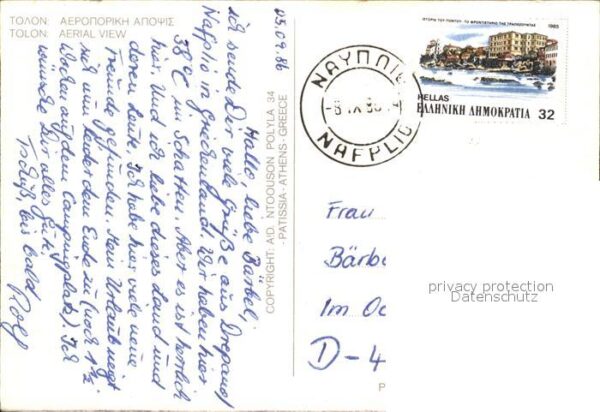 ΤΟΛΟΝ: ΑΕΡΟΠΟΡΙΚΗ ΑΠΟΨΙΣ
TOLON: AERIAL VIEW
03.09.86
Hallo, liebe Bärbel,
ich sende Dir viele Grüße aus Drepano/
Nafplio in Griechenland. Wir haben hier
38°C im Schatten. Aber es ist herrlich
hier. Und ich liebe dieses Land und
deren Leute. Ich habe hier viele neue
Freunde gefunden. Mein Urlaub neigt
sich nun leider dem Ende zu (noch 1 ½
Wochen auf dem Campingplatz). Ich
wünsche Dir alles Gute.
Tschüß, bis bald
Rolf
COPYRIGHT: A/D. NTOOUSON POLYLA 34
- PATISSIA - ATHENS - GREECE
ΝΑΥΠΛΙΟ
NAFPLIO
ΙΣΤΟΡΙΑ ΤΟΥ ΠΟΝΤΟΥ - ΤΟ ΦΡΟΝΤΙΣΤΗΡΙΟ ΤΗΣ ΤΡΑΠΕΖΟΥΝΤΑΣ
1985
HELLAS
ΕΛΛΗΝΙΚΗ ΔΗΜΟΚΡΑΤΙΑ 32
Frau
Bärb
Im O
D-4
privacy protection
Datenschutz
P